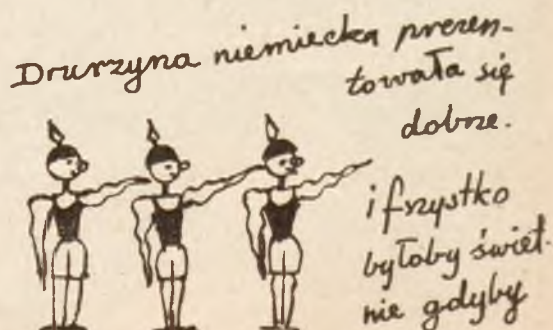 Drurzyna niemiecka prezen-
towała się
dobrze.
i fszystko
byłoby świet-
nie gdyby